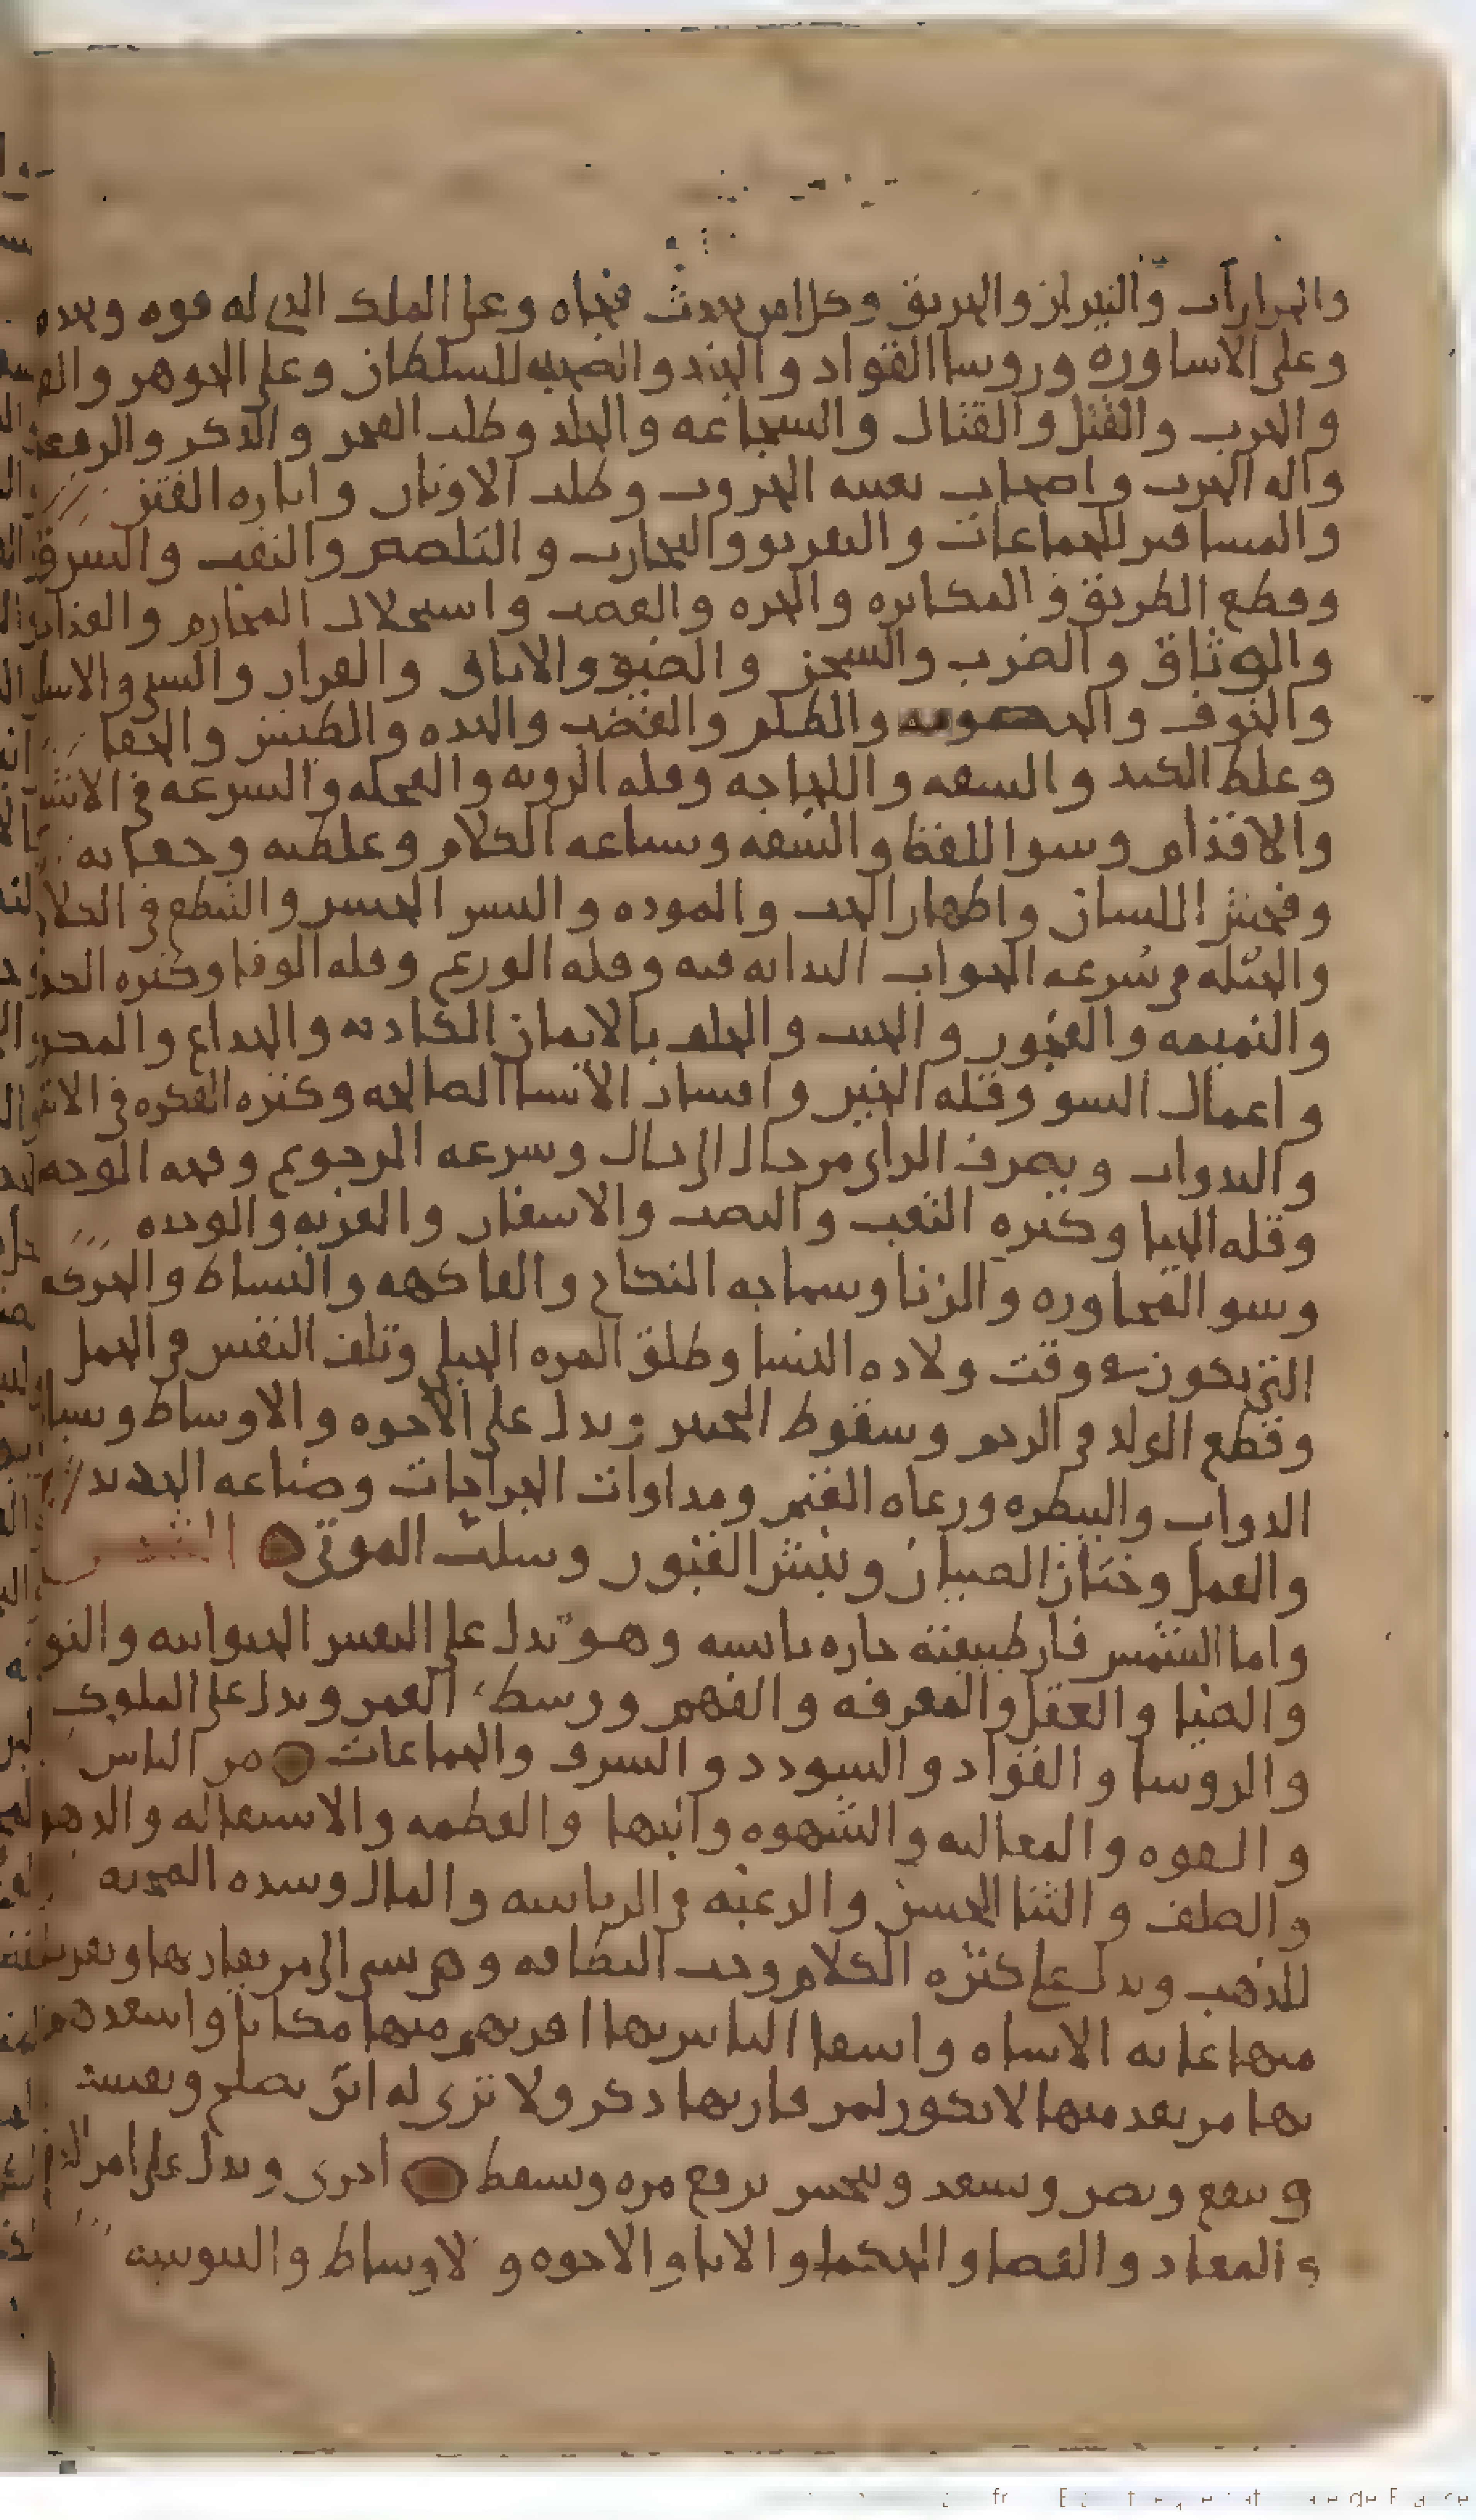 والحرارات والنيران والحريق وكل امر يحدث فجاه وعلى الملك الذي له قوه وحده
وعلى الاساوره وروسا القواد والجند والصحبه للسلطان وعلى الجوهر
والحرب والقتل والقتال والسجاعه والجلد وطلب الفخر والذكر والرفعه
واله الحرب واصحاب تعبيه الحروب وطلب الاوتار واثاره الفتن
والمسافر للجماعات والتفريق والتحارب والتلصص والنقب والسرقه
وقطع الطريق في المكابره والجره والغصب واستحلال المحارم والعذاب
والوثاق والضرب والسجن والضيق والاباق والفرار والسبي والاسار
والخوف والخصومه والظلم والغضب والحده والطيش والجفا
وغلظ الكبد والسفه واللجاجه وقله الرويه والعجله والسرعه في الاشيا
والاقدام وسو اللفظ والسفه وبشاعه الكلام وغلظه وجفايه
وفحش اللسان واظهار الحب والموده والبشر الحسن والتنطع في الكلام
والحيله في سرعه الجواب الندامه فيه وقله الورع وقله الوفا وكثره الكذب
والنميمه والفجور والخبث والحلف بالايمان الكاذبه والخداع والمكر
واعمال السو وقله الخير وافساد الاشيا الصالحه وكثره الفكره في الاشيا
والبدوات وتصرف الراي من حال الى حال وسرعه الرجوع وقحه الوجه
وقله الحيا وكثره التعب والنصب والاسفار والغربه والوحده
وسو المجاوره والزنا وسماجه النكاح والفاكهه والنشاط والحركه
التي يكون وقت ولاده النسا وطلق المره الحبلى وتلف النفس في الحمل
وقطع الولد في الرحم وسقوط الجنين ويدل على الاخوه والاوساط وسياسه
الدواب والبيطره ورعاه الغنم ومداوات الجراحات وصناعه الحديد
والعمل وختان الصبيان ونبش القبور وسلب الموتى الشمس
واما الشمس فان طبيعته حاره يابسه وهو تدل على النفس الحيوانيه والنور
والضيا والعقل والمعرفه والفهم ووسط العمر ويدل على الملوك
والروسا والقواد والسودد والسرف والجماعات من الناس
والقوه والمغالبه والشهوه والبها والعظمه والاستعاله والزهو
والصلف والثنا الحسن والرغبه في الرياسه والمال وشده المحبه
للذهب ويدل على كثره الكلام وحب النظافه وهي تسي الى من يقاربها ويقرب
منها غايه الاساه واشقا الناس بها اقربهم منها مكانا واسعدهم
بها من بعد منها لا يكون لمن قاربها ذكر ولا ترى له اثر تصلح وتفسد
وتنفع وتضر وتسعد وتنحس ترفع مره وتسقط اخرى ويدل على امر
المعاد والقضا والحكما والابا والاخوه والاوساط